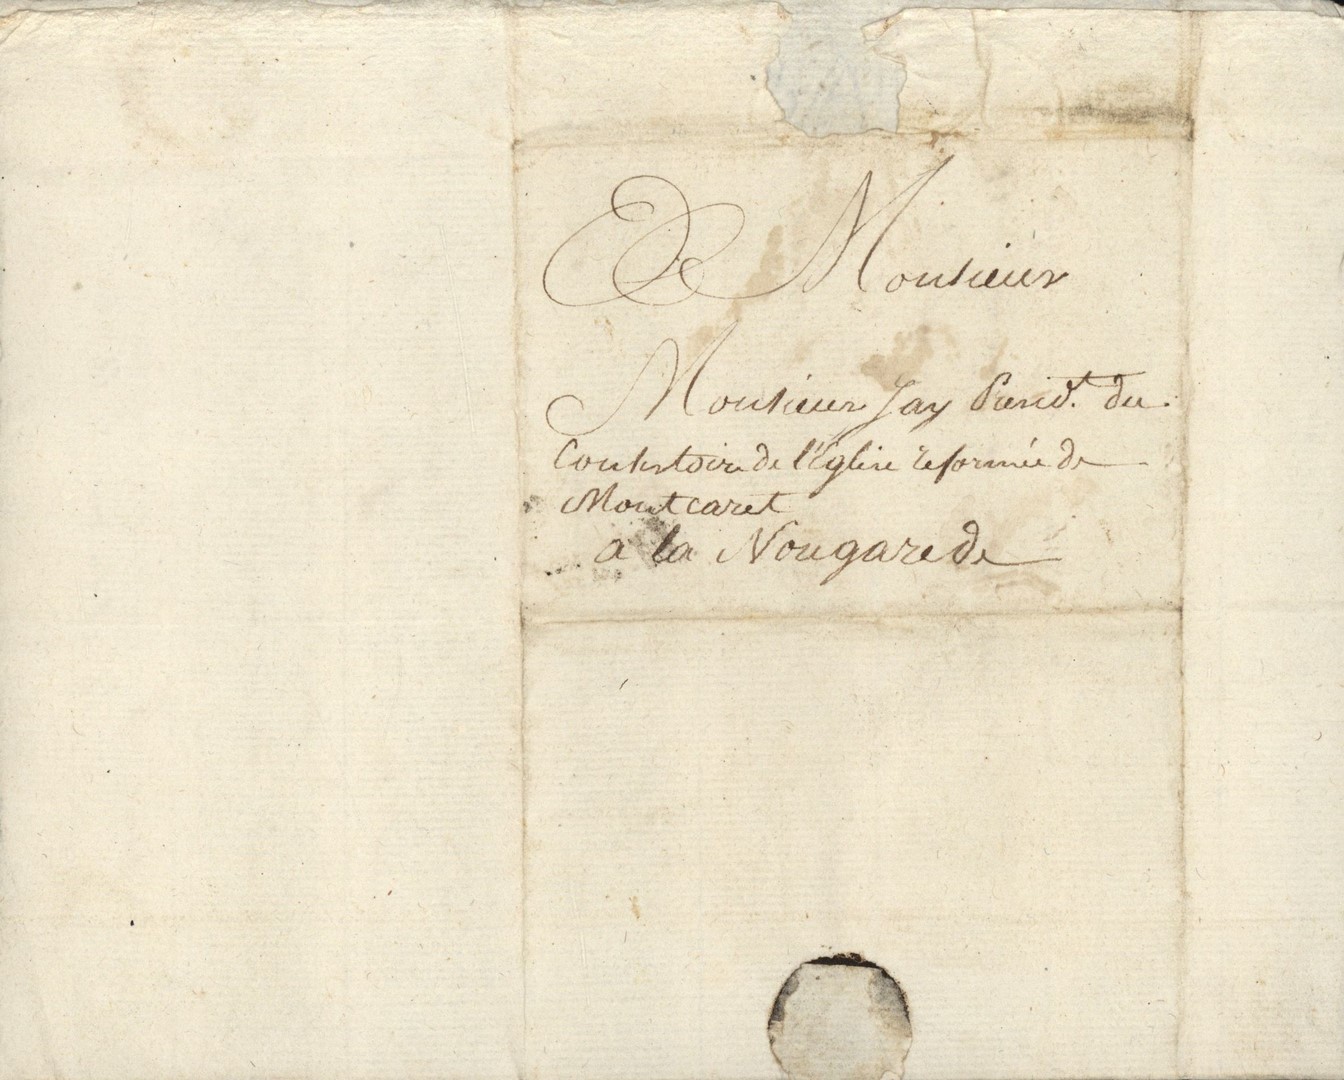 A Monsieur
Monsieur Jay Presid.t du
Consistoire de l'Eglise reformée de
Montcaret
a la Nougarede